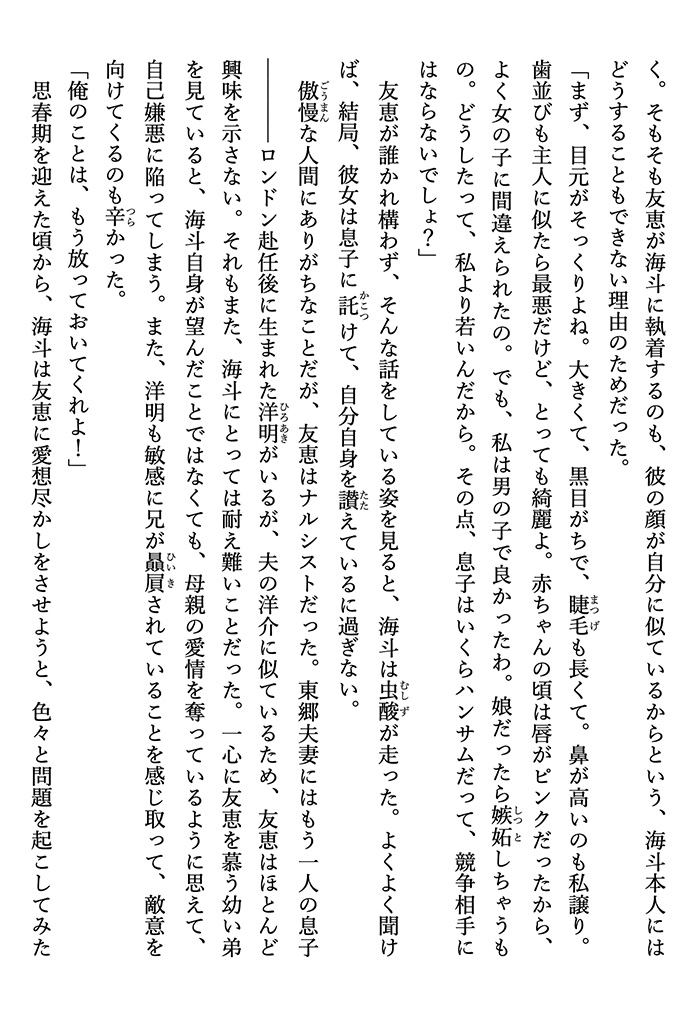 く。そもそも友恵が海斗に執着するのも、彼の顔が自分に似ているからという、海斗本人には
どうすることもできない理由のためだった。
「まず、目元がそっくりよね。大きくて、黒目がちで、睫毛も長くて。鼻が高いのも私譲り。
歯並びも主人に似たら最悪だけど、とっても綺麗よ。赤ちゃんの頃は唇がピンクだったから、
よく女の子に間違えられたの。でも、私は男の子で良かったわ。娘だったら嫉妬しちゃうも
の。どうしたって、私より若いんだから。その点、息子はいくらハンサムだって、競争相手に
はならないでしょ？」
友恵が誰かれ構わず、そんな話をしている姿を見ると、海斗は虫酸が走った。よくよく聞け
ば、結局、彼女は息子に託けて、自分自身を讃えているに過ぎない。
傲慢な人間にありがちなことだが、友恵はナルシストだった。東郷夫妻にはもう一人の息子
――ロンドン赴任後に生まれた洋明がいるが、夫の洋介に似ているため、友恵はほとんど
興味を示さない。それもまた、海斗にとっては耐え難いことだった。一心に友恵を慕う幼い弟
を見ていると、海斗自身が望んだことではなくても、母親の愛情を奪っているように思えて、
自己嫌悪に陥ってしまう。また、洋明も敏感に兄が贔屓されていることを感じ取って、敵意を
向けてくるのも辛かった。
「俺のことは、もう放っておいてくれよ！」
思春期を迎えた頃から、海斗は友恵に愛想尽かしをさせようと、色々と問題を起こしてみた